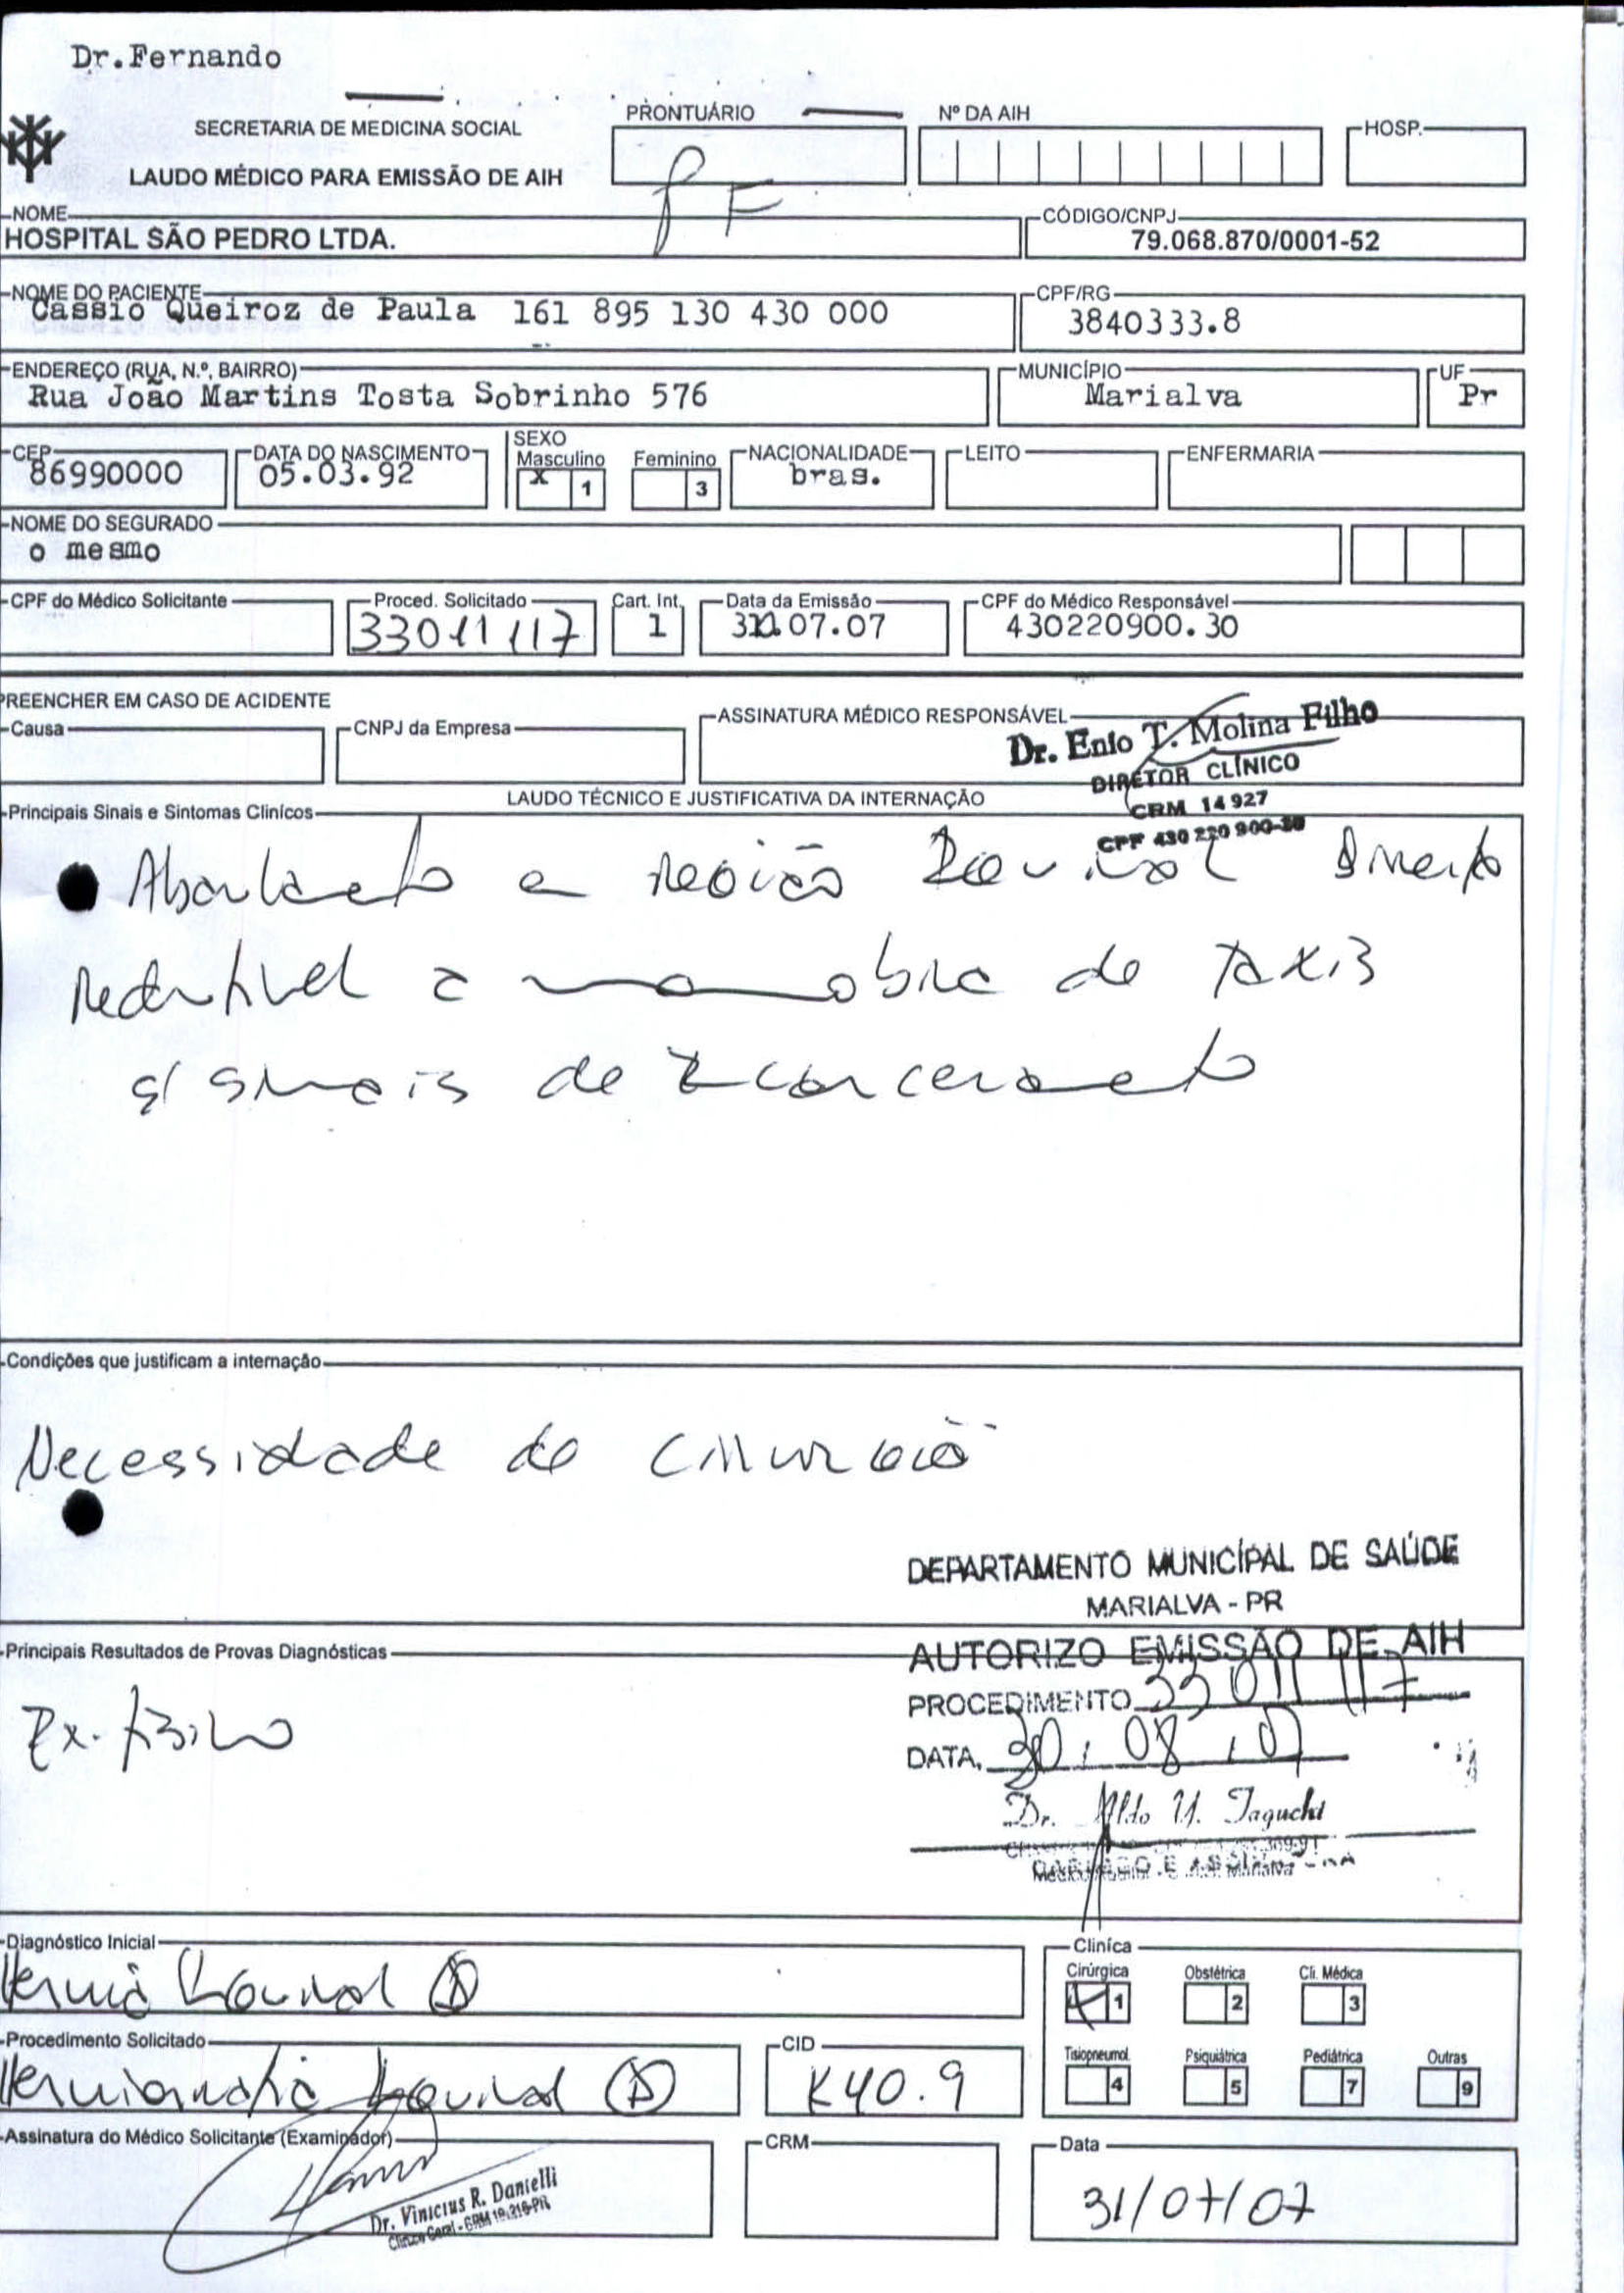 Dr.Fernando
SECRETARIA DE MEDICINA SOCIAL
LAUDO MÉDICO PARA EMISSÃO DE AIH
PRONTUÁRIO
Nº DA AIH
HOSP.
NOME
HOSPITAL SÃO PEDRO LTDA.
CÓDIGO/CNPJ
79.068.870/0001-52
NOME DO PACIENTE
Cassio Queiroz de Paula 161 895 130 430 000
CPF/RG
3840333.8
ENDEREÇO (RUA, N.º, BAIRRO)
Rua João Martins Tosta Sobrinho 576
MUNICÍPIO
Marialva
UF
Pr
CEP
86990000
DATA DO NASCIMENTO
05.03.92
SEXO
Masculino x 1
Feminino 3
NACIONALIDADE
bras.
LEITO
ENFERMARIA
NOME DO SEGURADO
o mesmo
CPF do Médico Solicitante
Proced. Solicitado
33011117
Cart. Int.
1
Data da Emissão
31.07.07
CPF do Médico Responsável
430220900.30
PREENCHER EM CASO DE ACIDENTE
Causa
CNPJ da Empresa
ASSINATURA MÉDICO RESPONSÁVEL
Dr. Enio T. Molina Filho
DIRETOR CLÍNICO
CRM 14 927
CPF 430 220 900-30
LAUDO TÉCNICO E JUSTIFICATIVA DA INTERNAÇÃO
Principais Sinais e Sintomas Clinícos
Abaulamento a região Inguinal Direita
redutivel a manobra de taxis
s/ sinais de Encarceramento
Condições que justificam a internação
Necessidade de cirurgia
DEPARTAMENTO MUNICÍPAL DE SAÚDE
MARIALVA - PR
AUTORIZO EMISSÃO DE AIH
PROCEDIMENTO 33011117
DATA, 30, 08, 07
Dr. Aldo Y. Taguchi
CARIMBO E ASSINATURA
Principais Resultados de Provas Diagnósticas
Ex. físico
Diagnóstico Inicial
Hernia Inguinal D
Cliníca
Cirúrgica 1
Obstétrica 2
Cli. Médica 3
Procedimento Solicitado
Herniorrafia Inguinal D
CID
K40.9
Tisiopneumol. 4
Psiquiátrica 5
Pediátrica 7
Outras 9
Assinatura do Médico Solicitante (Examinador)
Dr. Vinicius R. Danielli
CRM
Data
31/07/07